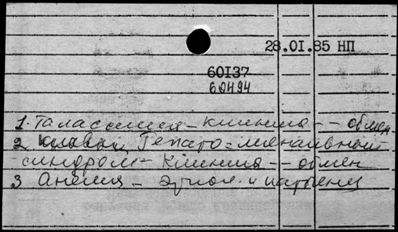 28.01.85 НП
60137
60494
1. Талассемия - клиника -- обмен
2. Гепато-лиенальный
синдром - клиника -- обмен
3 Анемия - этиол. и патогенез